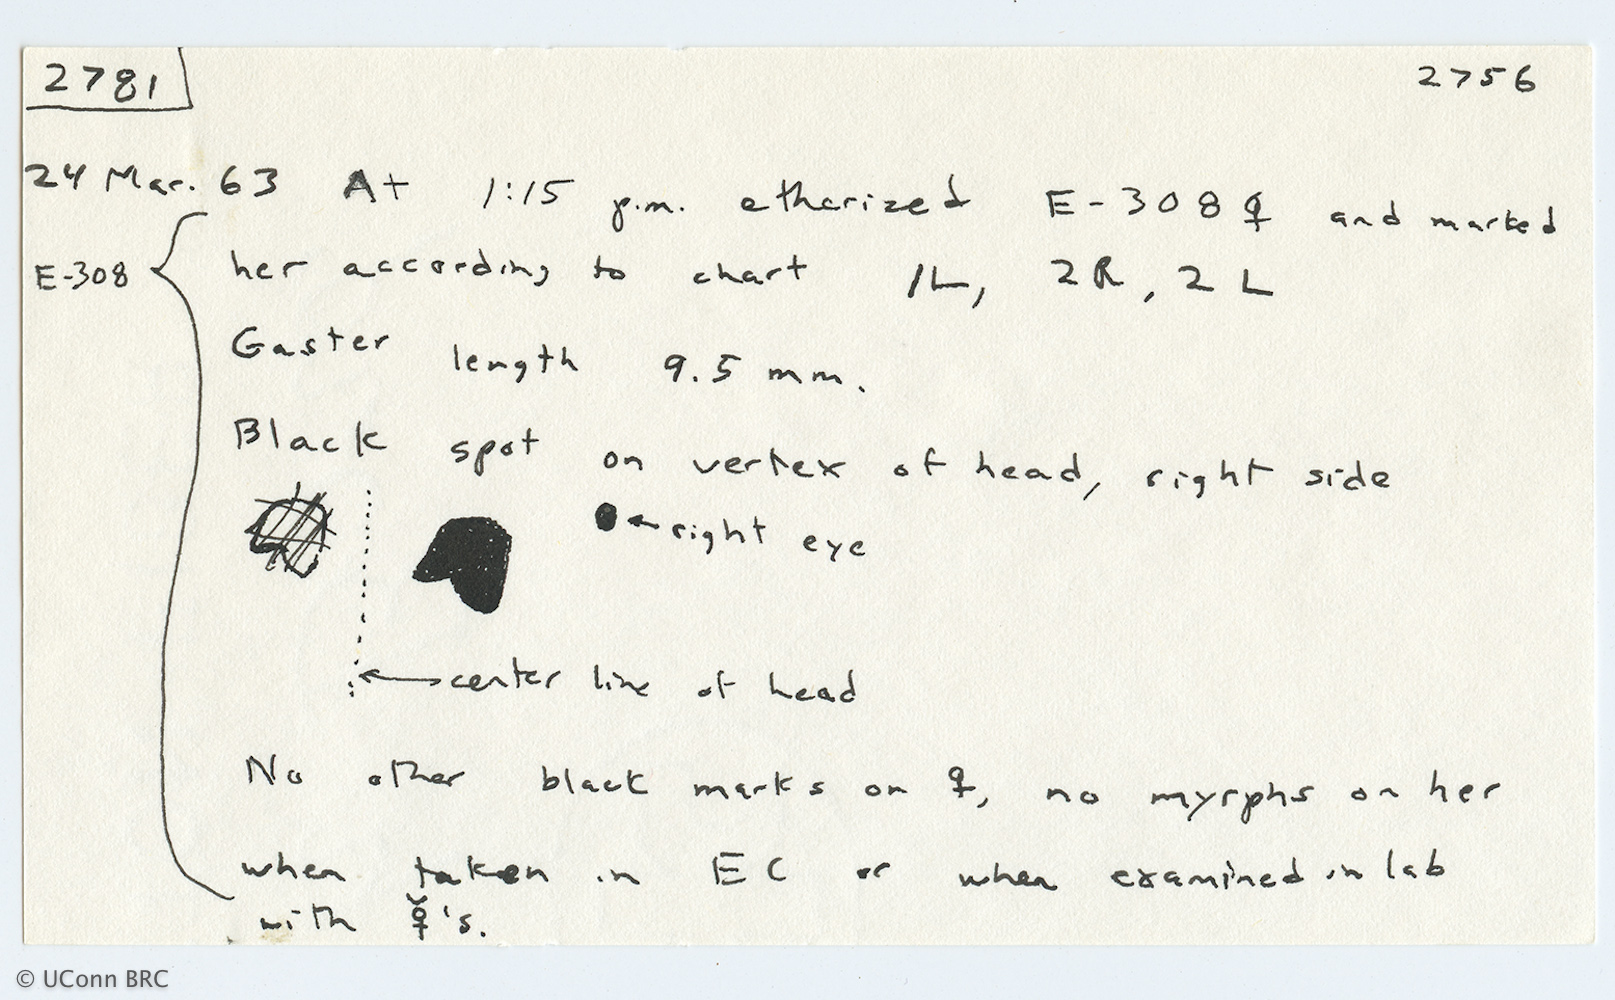 2781
2756
24 Mar. 63 At 1:15 p.m. etherized E-308♀ and marked
E-308
her according to chart 1L, 2R, 2L
Gaster length 9.5 mm.
Black spot on vertex of head, right side
right eye
center line of head
No other black marks on ♀, no myrphs on her
when taken in EC or when examined in lab
with ☿'s.
© UConn BRC